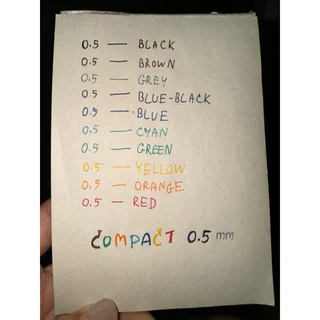 0.5 — BLACK
0.5 — BROWN
0.5 — GREY
0.5 — BLUE-BLACK
0.5 — BLUE
0.5 — CYAN
0.5 — GREEN
0.5 — YELLOW
0.5 — ORANGE
0.5 — RED
COMPACT 0.5 mm